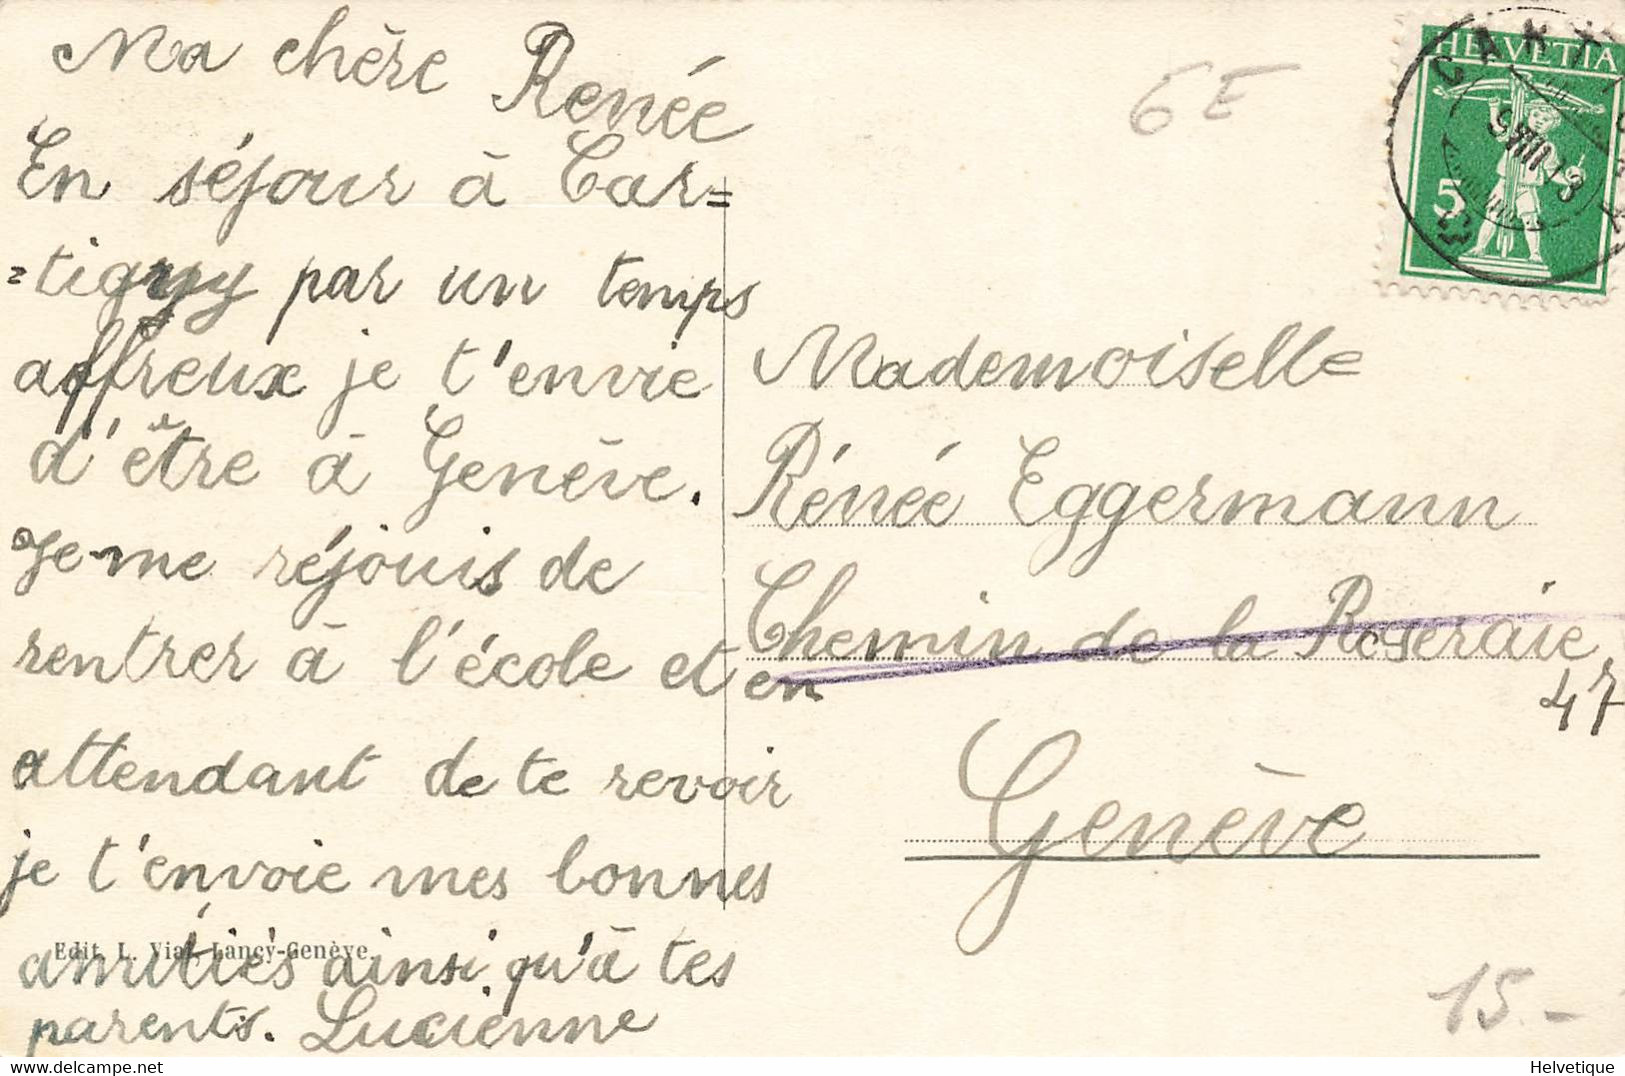 Ma chère Renée
En séjour à Car=
=tigny par un temps
affreux je t'envie
d'être à Genève.
Je me réjouis de
rentrer à l'école et en
attendant de te revoir
je t'envoie mes bonnes
amitiés ainsi qu'à tes
parents. Lucienne
Edit. L. Vial, Lancy-Genève.
6 E
HELVETIA
5
CARTIGNY
9 VIII 13
Mademoiselle
Rénée Eggermann
Chemin de la Roseraie
47
Genève
15.-
delcampe.net
Helvetique